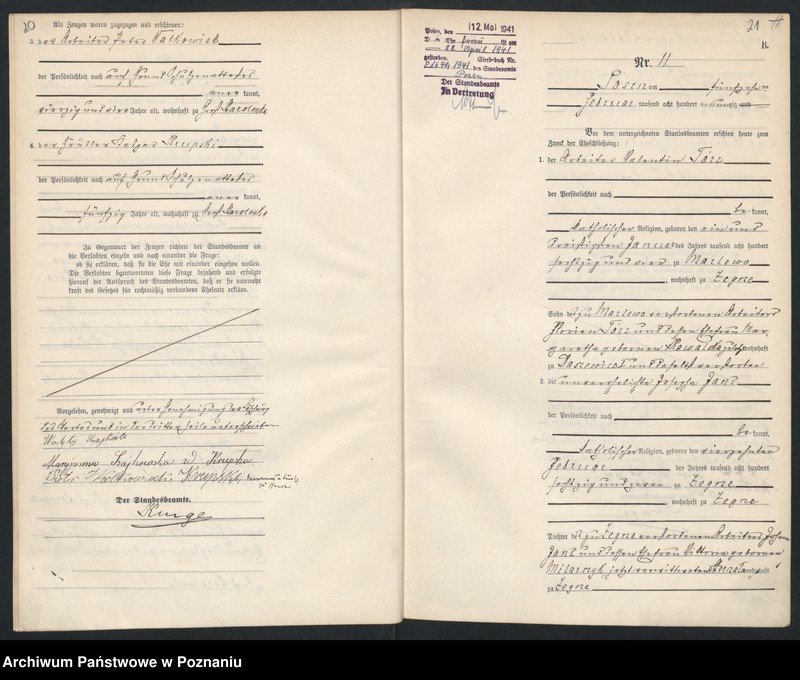 20
Als Zeugen waren zugezogen und erschienen:
3. der Arbeiter Peter Walkowiak
der Persönlichkeit nach auf Grund Schulzenattestes
aner kannt,
vierzig und vier Jahre alt, wohnhaft zu Groß Starolenka
4. der Häusler Krupski
der Persönlichkeit nach auf Grund Schulzenattestes
aner kannt,
fünfzig Jahre alt, wohnhaft zu Groß Starolenka
In Gegenwart der Zeugen richtete der Standesbeamte an
die Verlobten einzeln und nach einander die Frage:
ob sie erklären, daß sie die Ehe mit einander eingehen wollen.
Die Verlobten beantworteten diese Frage bejahend und erfolgte
hierauf der Ausspruch des Standesbeamten, daß er sie nunmehr
kraft des Gesetzes für rechtmäßig verbundene Eheleute erkläre.
Vorgelesen, genehmigt und unter Genehmigung der
Maryjanna Krupska
Piotr Walkowiak Krupski
Der Standesbeamte.
Kunge
21
Posen, den 12. Mai 1941
D ie Ehe frau ist am
22. April 1941
gestorben. Sterb-buch Nr.
1941 des Standesamts
Posen
Der Standesbeamte
In Vertretung
B.
Nr. 11
Posen am fünfzehn ten
Februar tausend acht hundert neunzig und
Vor dem unterzeichneten Standesbeamten erschien heute zum
Zweck der Eheschließung:
1. der Arbeiter Valentin Torz
der Persönlichkeit nach
be kannt,
katholischer Religion, geboren den ein und
dreißigsten Januar des Jahres tausend acht hundert
sechszig und vier zu Marlewo
, wohnhaft zu Zegrze
Sohn des zu Marlewo verstorbenen Arbeiters
Florian Torz und dessen Ehefrau Mar-
garetha geborenen Kowalska wohnhaft
zu Daszewice und daselbst verstorben
2. die unverehelichte Josepha Janz
der Persönlichkeit nach
be kannt,
katholischer Religion, geboren den vierzehnten
Februar des Jahres tausend acht hundert
sechszig und zwei zu Zegrze
, wohnhaft zu Zegrze
Tochter des zu Zegrze verstorbenen Arbeiters Johann
Janz und dessen Ehefrau Viktoria geborenen
jetzt wohnhaft
zu Zegrze
Archiwum Państwowe w Poznaniu